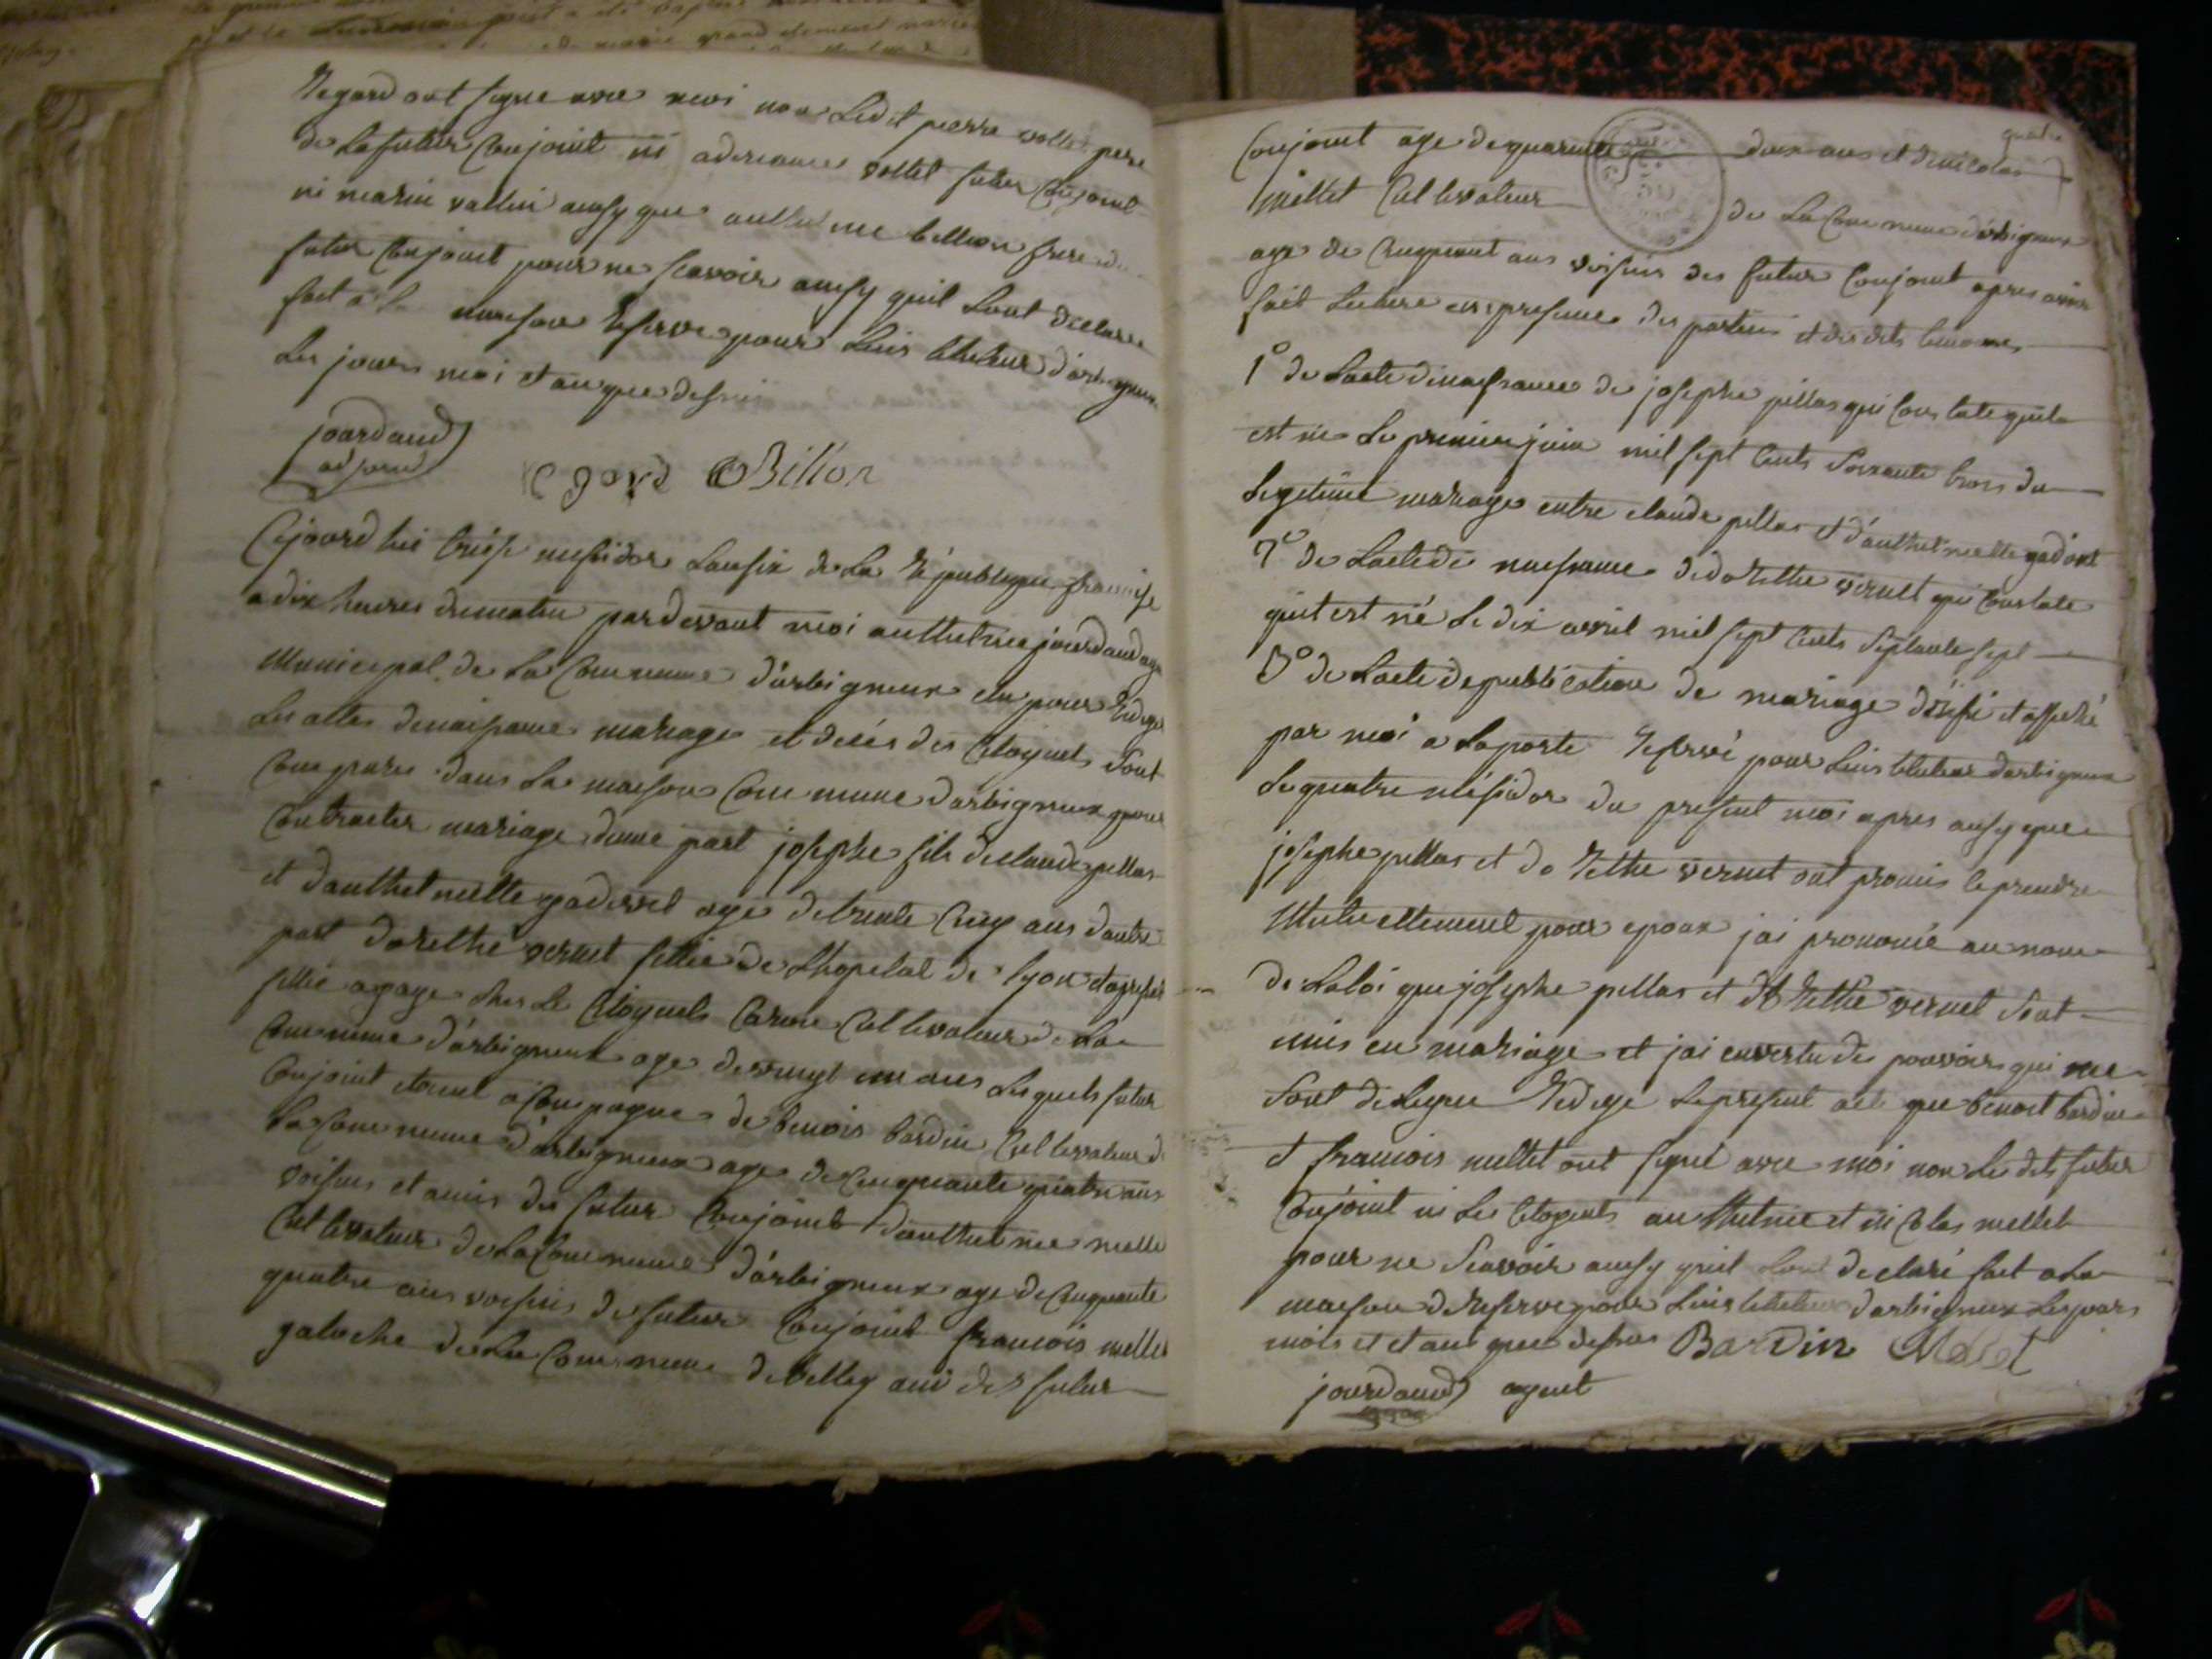 Regard ont signe avec moi non Ledit pierre vollet pere
de La futur Conjoint ni adrianne vollet futur Conjoint
ni marin vallin ausy que anthelme billion frere du
futur Conjoint pour ne scavoir ausy quil Lont declaree
fait a la maison Reserve pour Lins tituteur d'arbigneux
Les jours moi et an que desus
jourdand
adjoint
Regard Billion
Cejourd hui treise messidor Lansix de La Republique francaise
a dix heures dematin pardevant moi anthelme jourdand agent
Municipal de La Commune d'arbigneux elu pour Rediger
Les actes denaissance mariage et décés des Citoyens Sont
Comparu dans La maison Commune darbigneux pour
Contracter mariage d'une part josephe fils declaude pillas
et d'anthelmette gadivet age detrente Cinq ans dautre
part dorethé vernet fillie de Lhopital de lyon et apresent
fillie agage ches Le Citoyens Caron Cultivateur de La
Commune d'arbigneux age de vingt un ans Lesquels futur
Conjoint etoient acompagne de benois bardin Cultivateur de
La Commune d'arbigneux age de Cinquante quatre ans
voisins et amis du futur Conjoint d'anthelme mellet
Cultivateur de La Commune d'arbigneux age de Cinquante
quatre ans voisins des futur Conjoint francois mellet
galoche de La Commune de belley ami des futur
quatre
Conjoint age de quarante deux ans et de nicolas
mellet Cultivateur de La Commune d'arbigneux
age de Cinquant ans voisins des futur Conjoint apres avoir
fait Lecture en presence des parties et des dits temoins
1° de Lacte denaissance de josephe pillas qui Constate quil
est né Le premier juin mil sept Cents Soixante trois du
Legitime mariage entre claude pillas et d'anthelmette gadivet
2° de Lacte de naissance de dorethe vernet qui Constate
quil est né Le dix avril mil sept Cents Septante sept
3° de Lacte de publication de mariage dressé et affiché
par moi a Laporte Reservé pour Lins tituteur darbigneux
Le quatre messidor du present mois apres ausy que
josephe pillas et do Rethe vernet ont promis se prendre
Mutuellement pour epoux jai prononcé au nom
de Laloi que josephe pillas et do Rethe vernet Sont
unis en mariage et jai en vertu des pouvoirs qui me
Sont delegue Redige Le present acte que benoit bardin
et francois mellet ont signé avec moi non Les dits futur
Conjoint ni Les Citoyens anthelme et ni Colas mellet
pour ne Scavoir ausy quil Lont declaré fait a La
maison de Reserve pour Lins tituteur darbigneux Les jours
mois et et an que desus Bardin Mellet
jourdand agent